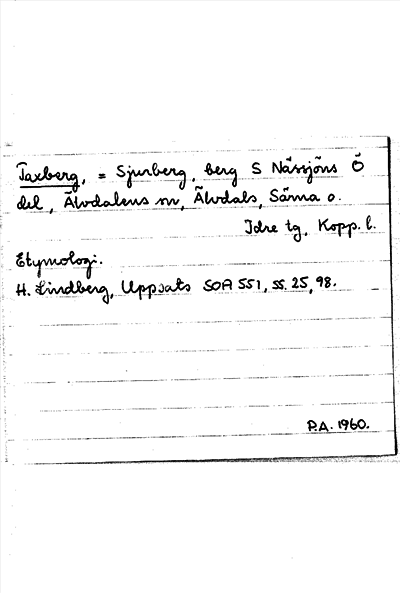 Taxberg, = Sjurberg, berg S Nässjöns Ö
del, Älvdalens sn, Älvdals, Särna o.
Idre tg, Kopp. l.
Etymologi.
H. Lindberg, Uppsats SOA 551, ss. 25, 98.
P.A. 1960.